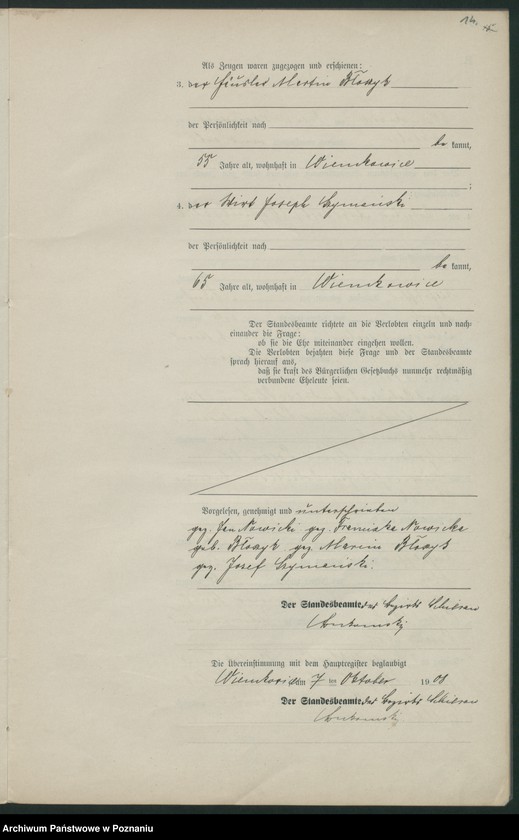 Als Zeugen waren zugezogen und erschienen:
3. der Häusler Martin Błaszyk
der Persönlichkeit nach
be kannt,
55 Jahre alt, wohnhaft in Wienskowice
;
4. der Wirt Joseph Szymański
der Persönlichkeit nach
be kannt,
65 Jahre alt, wohnhaft in Wienskowice
Der Standesbeamte richtete an die Verlobten einzeln und nach-
einander die Frage:
ob sie die Ehe miteinander eingehen wollen.
Die Verlobten bejahten diese Frage und der Standesbeamte
sprach hierauf aus,
daß sie kraft des Bürgerlichen Gesetzbuchs nunmehr rechtmäßig
verbundene Eheleute seien.
Vorgelesen, genehmigt und unterschrieben
gez. Jan Nowicki gez. Franciszka Nowicka
geb. Błaszyk gez. Marcin Błaszyk
gez. Józef Szymański.
Der Standesbeamte des Bezirks
Die Übereinstimmung mit dem Hauptregister beglaubigt
am 7 ten Oktober 190
Der Standesbeamte des Bezirks
Archiwum Państwowe w Poznaniu